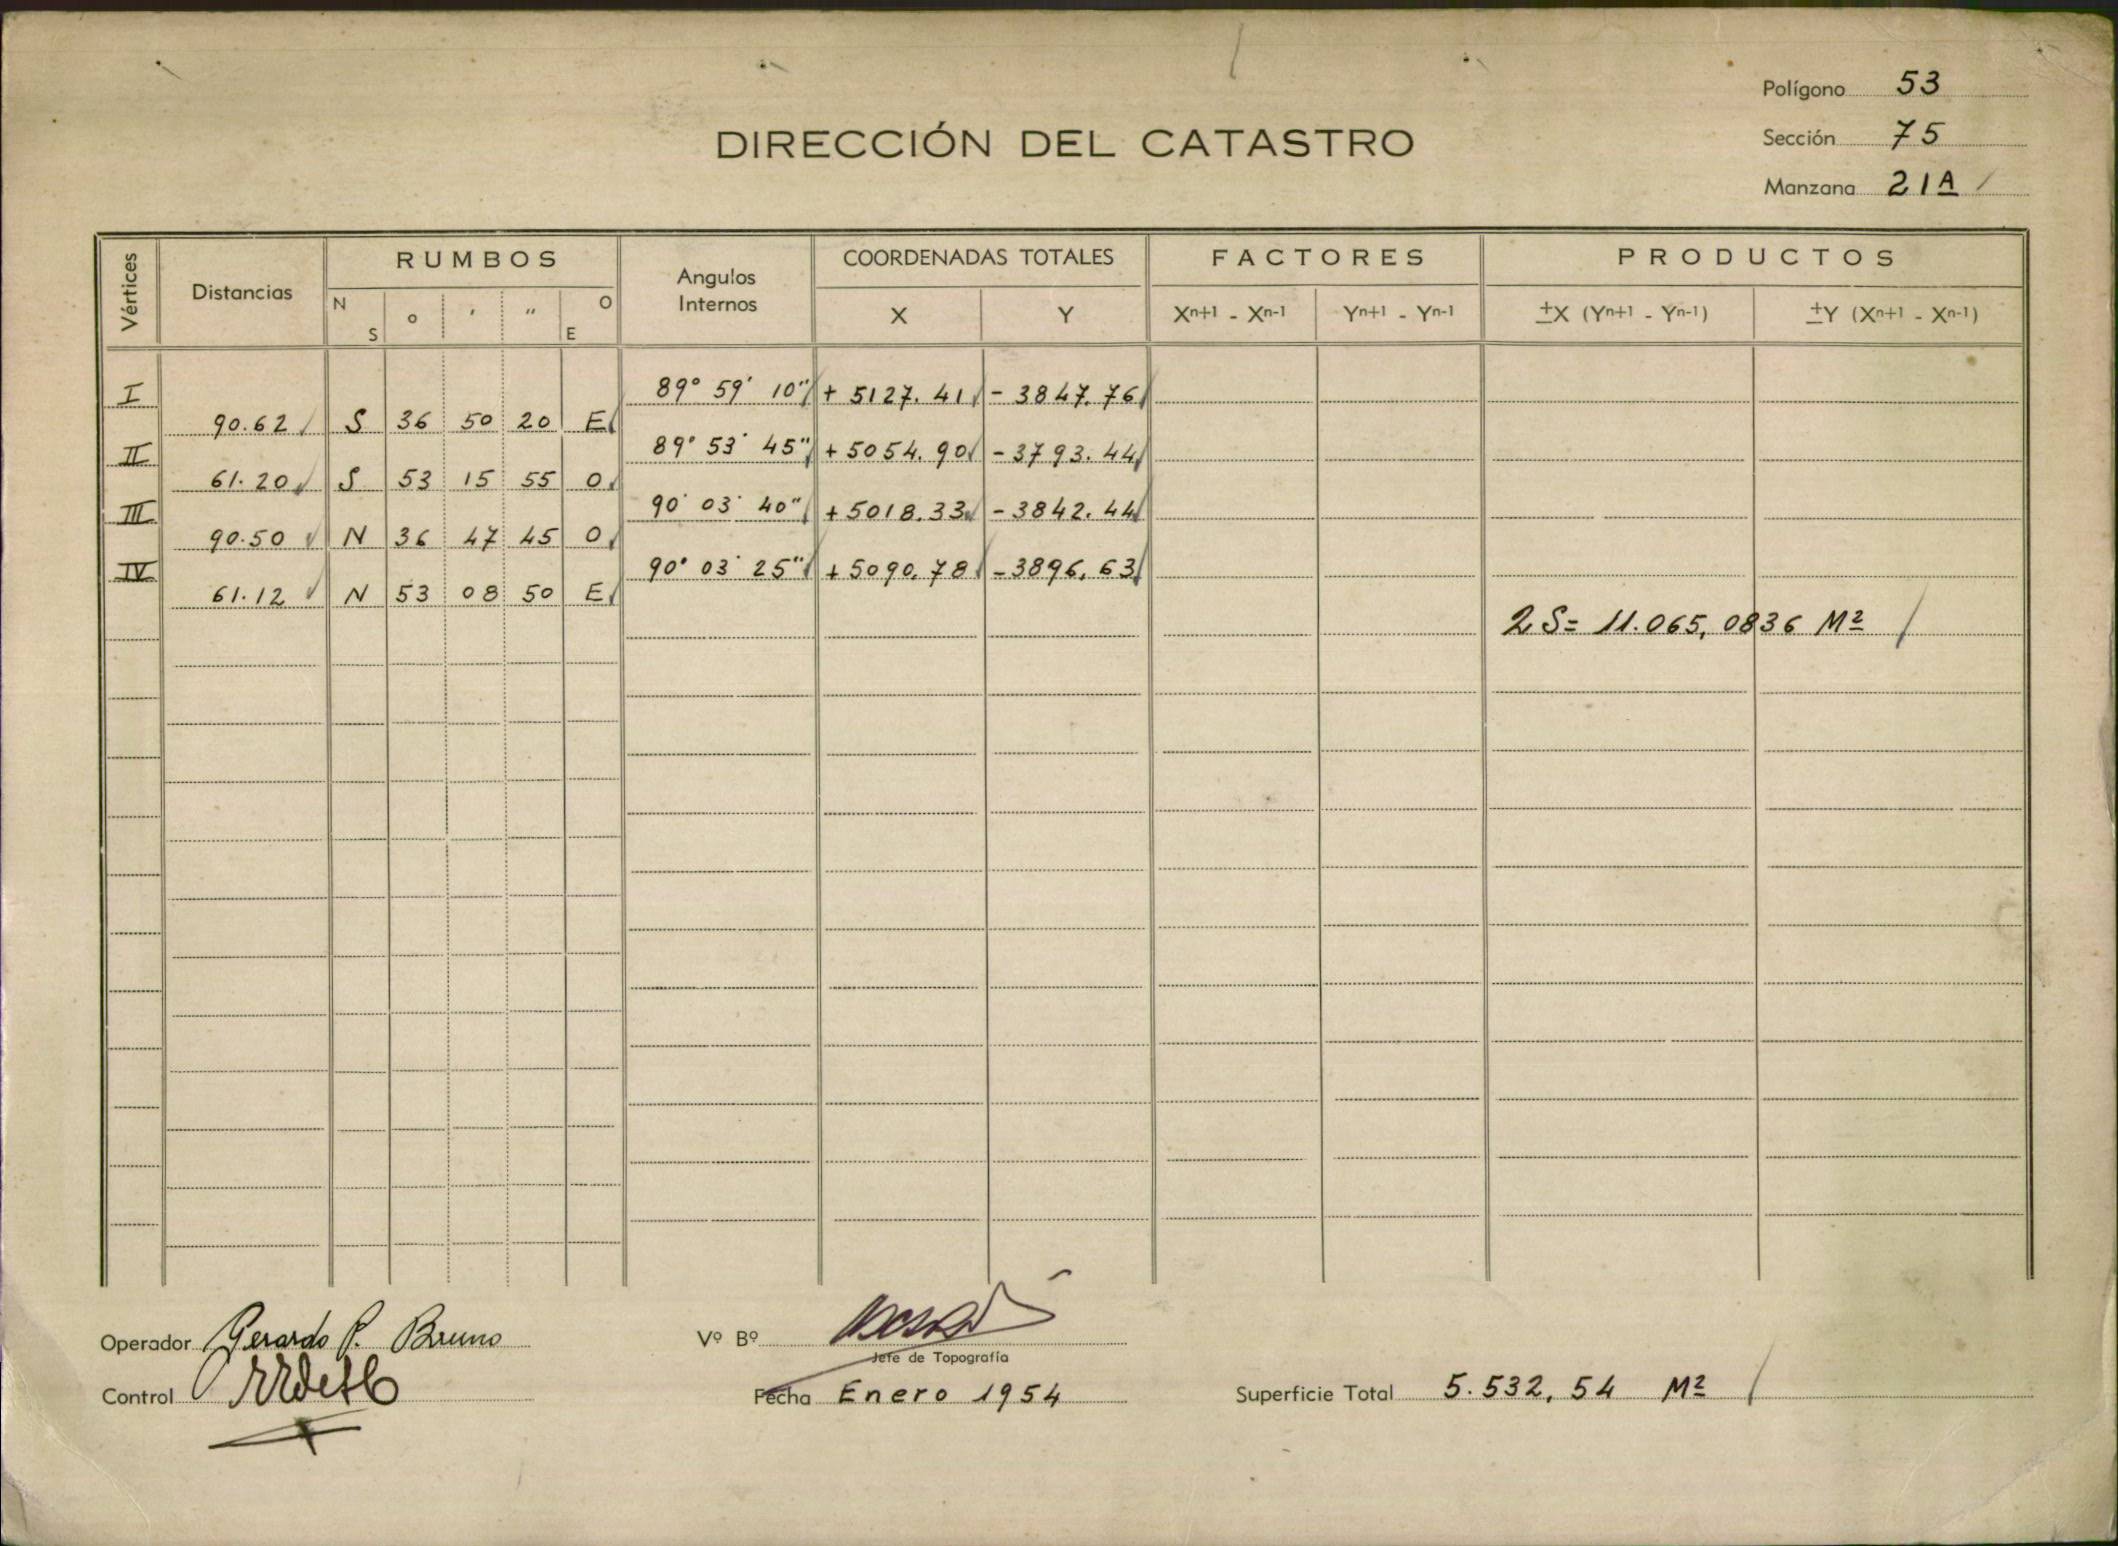 Polígono 53
DIRECCIÓN DEL CATASTRO
Sección 75
Manzana 21A
Vértices Distancias RUMBOS Angulos Internos COORDENADAS TOTALES FACTORES PRODUCTOS
N S o ' " O E X Y Xn+1 - Xn-1 Yn+1 - Yn-1 ±X (Yn+1 - Yn-1) ±Y (Xn+1 - Xn-1)
I 89° 59' 10" + 5127.41 - 3847.76
90.62 S 36 50 20 E
II 89° 53' 45" + 5054.90 - 3793.44
61.20 S 53 15 55 O
III 90° 03' 40" + 5018.33 - 3842.44
90.50 N 36 47 45 O
IV 90° 03' 25" + 5090.78 - 3896.63
61.12 N 53 08 50 E
2 S = 11.065,0836 M2
Operador Gerardo P. Bruno
Vº Bº
Jefe de Topografía
Control
Fecha Enero 1954
Superficie Total 5.532,54 M2